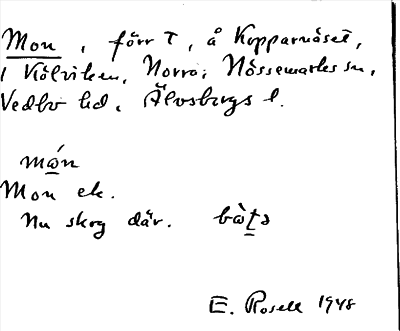 Mon, förr T, å Kopparnäset,
i Kölviken, Norra, Nössemarks sn,
Vedbo hd, Älvsborgs l.
mǿn
Mon ek.
Nu skog där.
E. Rosell 1948